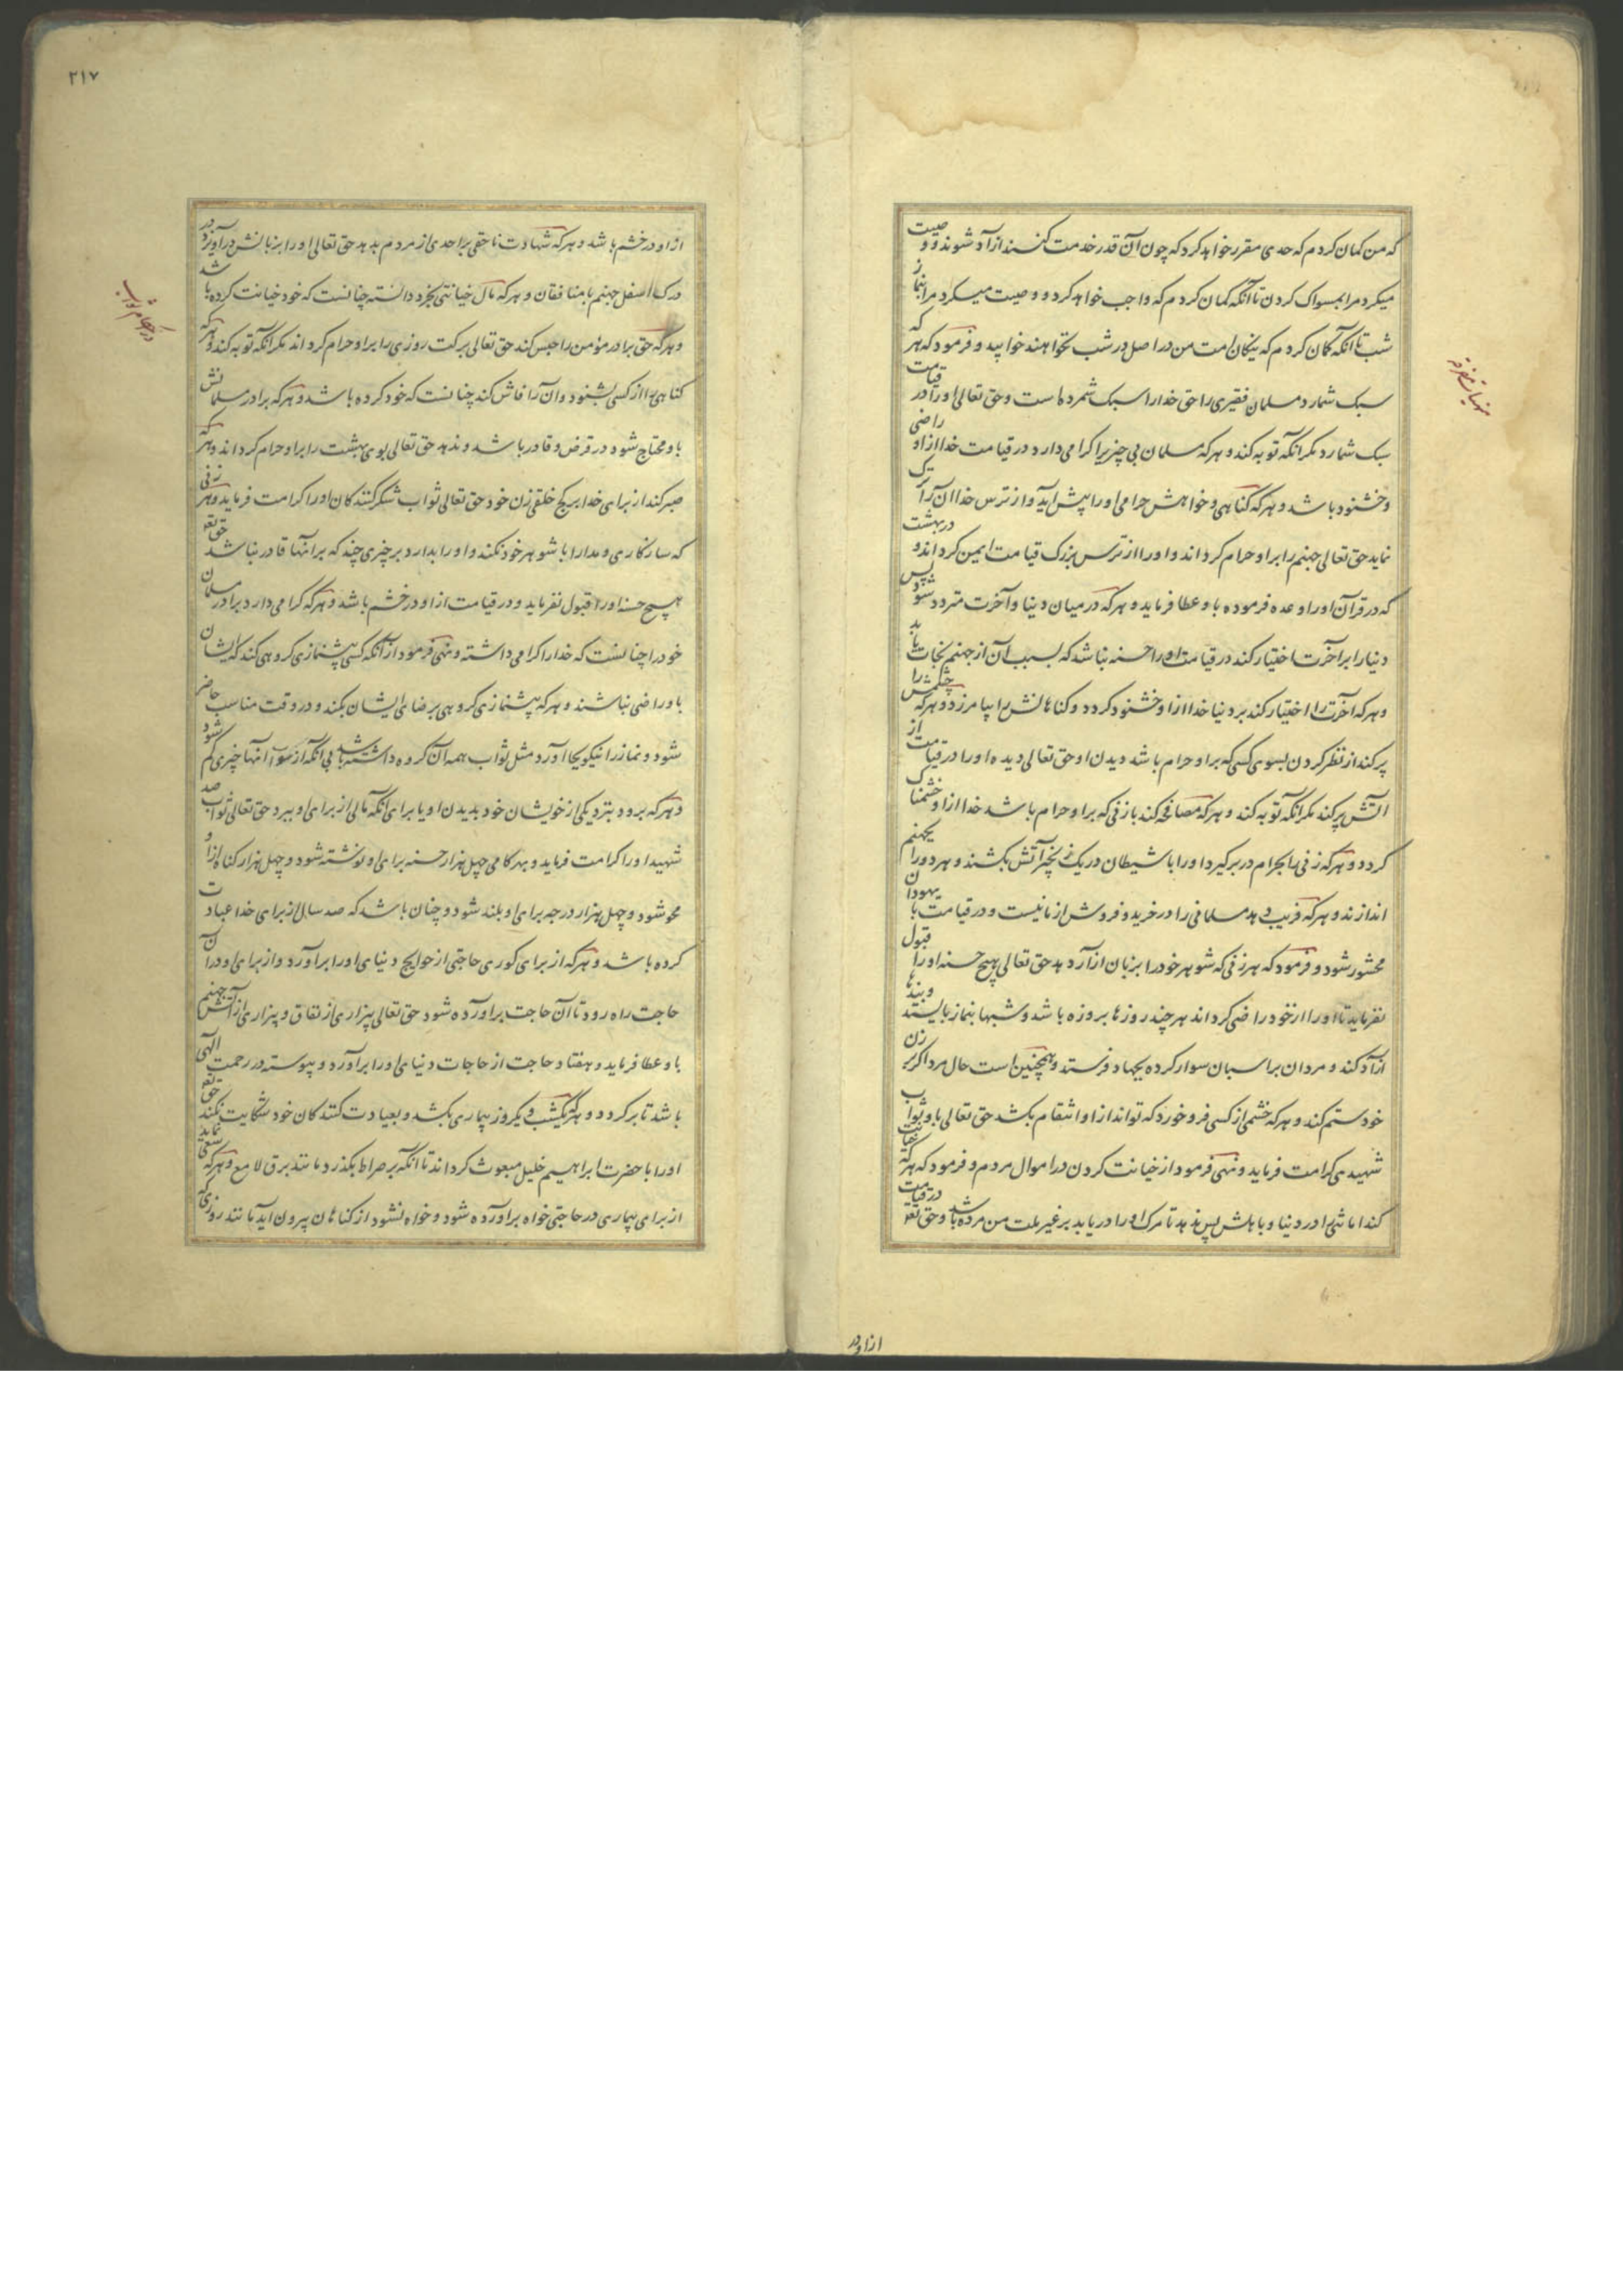 که من کمان کردم که حدی مقرر خواهد کرد که چون آن قدر خدمت کنند ازآد شوند و وصیت
میکرد مرا بمسواک کردن تا آنکه کمان کردم که واجب خواهد کرد و وصیت میکرد مرا بنماز
شب تا آنکه کمان کردم که نیکان امت من در اصل در شب نخواهند خوابید و فرمود که هر که
سبک شمارد مسلمان فقیری را حق خدا را سبک شمرده است و حق تعالی او را در قیامت
سبک شمارد مکر آنکه توبه کند و هرکه مسلمان بی چیزیرا کرامی دارد در قیامت خدا ازاو راضی
و خشنود باشد و هرکه کناهی و خواهش حرامی او را پیش آید و از ترس خدا آن را ترک
نماید حق تعالی جهنم را بر او حرام کرداند و او را از ترس بزرک قیامت ایمن کرداند و در بهشت
که در قرآن او را وعده فرموده باو عطا فرماید و هرکه در میان دنیا و آخرت متردد شود پس
دنیا را بر آخرت اختیار کند در قیامت او را حسنه نباشد که بسبب آن از جهنم نجات یابد
و هرکه آخرت را اختیار کند بر دنیا خدا ازاو خشنود کردد و کناهانش را بیامرزد و هرکه چشمش را
پر کند از نظر کردن بسوی کسی که بر او حرام باشد دیدن او حق تعالی دیده او را در قیامت از
آتش پر کند مکر آنکه توبه کند و هرکه مصافحه کند با زنی که بر او حرام باشد خدا ازاو خشمناک
کردد و هرکه زنی را بحرام در بر کیرد او را با شیطان در یک زنجیر آتش بکشند و هر دو را بجهنم
اندازند و هرکه فریب دهد مسلمانی را در خرید و فروش از ما نیست و در قیامت با یهودان
محشور شود و فرمود که هر زنی که شوهر خود را بزبان ازآر دهد حق تعالی هیچ حسنه او را قبول
نفرماید تا او را از خود راضی کرداند هر چند روزها بروزه باشد و شبها بنماز بایستد و بندها
ازآد کند و مردان بر اسبان سوار کرده بجهاد فرستد و همچنین است حال مرد اکر بر زن
خود ستم کند و هرکه خشمی از کسی فرو خورد که تواند ازاو انتقام بکشد حق تعالی باو ثواب
شهیدی کرامت فرماید و نهی فرمود از خیانت کردن در اموال مردم و فرمود که هرکه خیانت
کند امانتی را در دنیا و باهلش پس ندهد تا مرک او را دریابد بر غیر ملت من مرده باشد و حق تع در قیامت
ازاو در
۲۱۷
ازاو در خشم باشد و هرکه شهادت ناحقی بر احدی از مردم بدهد حق تعالی او را بزبانش درآویزد در
درک اسفل جهنم با منافقان و هرکه مال خیانتی بخرد دانسته چنانست که خود خیانت کرده باشد
و هرکه حق برادر مؤمن را حبس کند حق تعالی برکت روزی را بر او حرام کرداند مکر آنکه توبه کند و هرکه
کناهی را از کسی بشنود و آن را فاش کند چنانست که خود کرده باشد و هرکه برادر مسلمانش
باو محتاج شود در قرض و قادر باشد و ندهد حق تعالی بوی بهشت را بر او حرام کرداند و هرکه
صبر کند از برای خدا بر کج خلقی زن خود حق تعالی ثواب شکر کنندکان او را کرامت فرماید و هر زنی
که سازکاری و مدارا با شوهر خود نکند و او را بدارد بر چیزی چند که بر آنها قادر نباشد حق تع
هیچ حسنه او را قبول نفرماید و در قیامت ازاو در خشم باشد و هرکه کرامی دارد برادر مسلمان
خود را چنانست که خدا را کرامی داشته و نهی فرمود از آنکه کسی پیشنمازی کروهی کند که ایشان
باو راضی نباشند و هرکه پیشنمازی کروهی برضای ایشان بکند و در وقت مناسب حاضر
شود و نماز را نیکو بجا آورد مثل ثواب همه آن کروه داشته باشد بی آنکه از ثواب آنها چیزی کم شود
و هرکه برود بنزدیکی از خویشان خود بدیدن او یا برای آنکه مالی از برای او ببرد حق تعالی ثواب صد
شهید او را کرامت فرماید و بهر کامی چهل هزار حسنه برای او نوشته شود و چهل هزار کناه ازاو
محو شود و چهل هزار درجه برای او بلند شود و چنان باشد که صد سال از برای خدا عبادت
کرده باشد و هرکه از برای کوری حاجتی از حوایج دنیای او را برآورد و از برای او در آن
حاجت راه رود تا آن حاجت برآورده شود حق تعالی بیزاری از نفاق و بیزاری از آتش جهنم
باو عطا فرماید و هفتاد حاجت از حاجات دنیای او را برآورد و پیوسته در رحمت الهی
باشد تا بر کردد و هرکه یکشب و یکروز بیماری بکشد و بعیادت کنندکان خود شکایت نکند حق تع
او را با حضرت ابراهیم خلیل مبعوث کرداند تا آنکه بر صراط بکذرد مانند برق لامع و هرکه سعی نماید
از برای بیماری در حاجتی خواه برآورده شود و خواه نشود از کناهان بیرون آید مانند روزی که